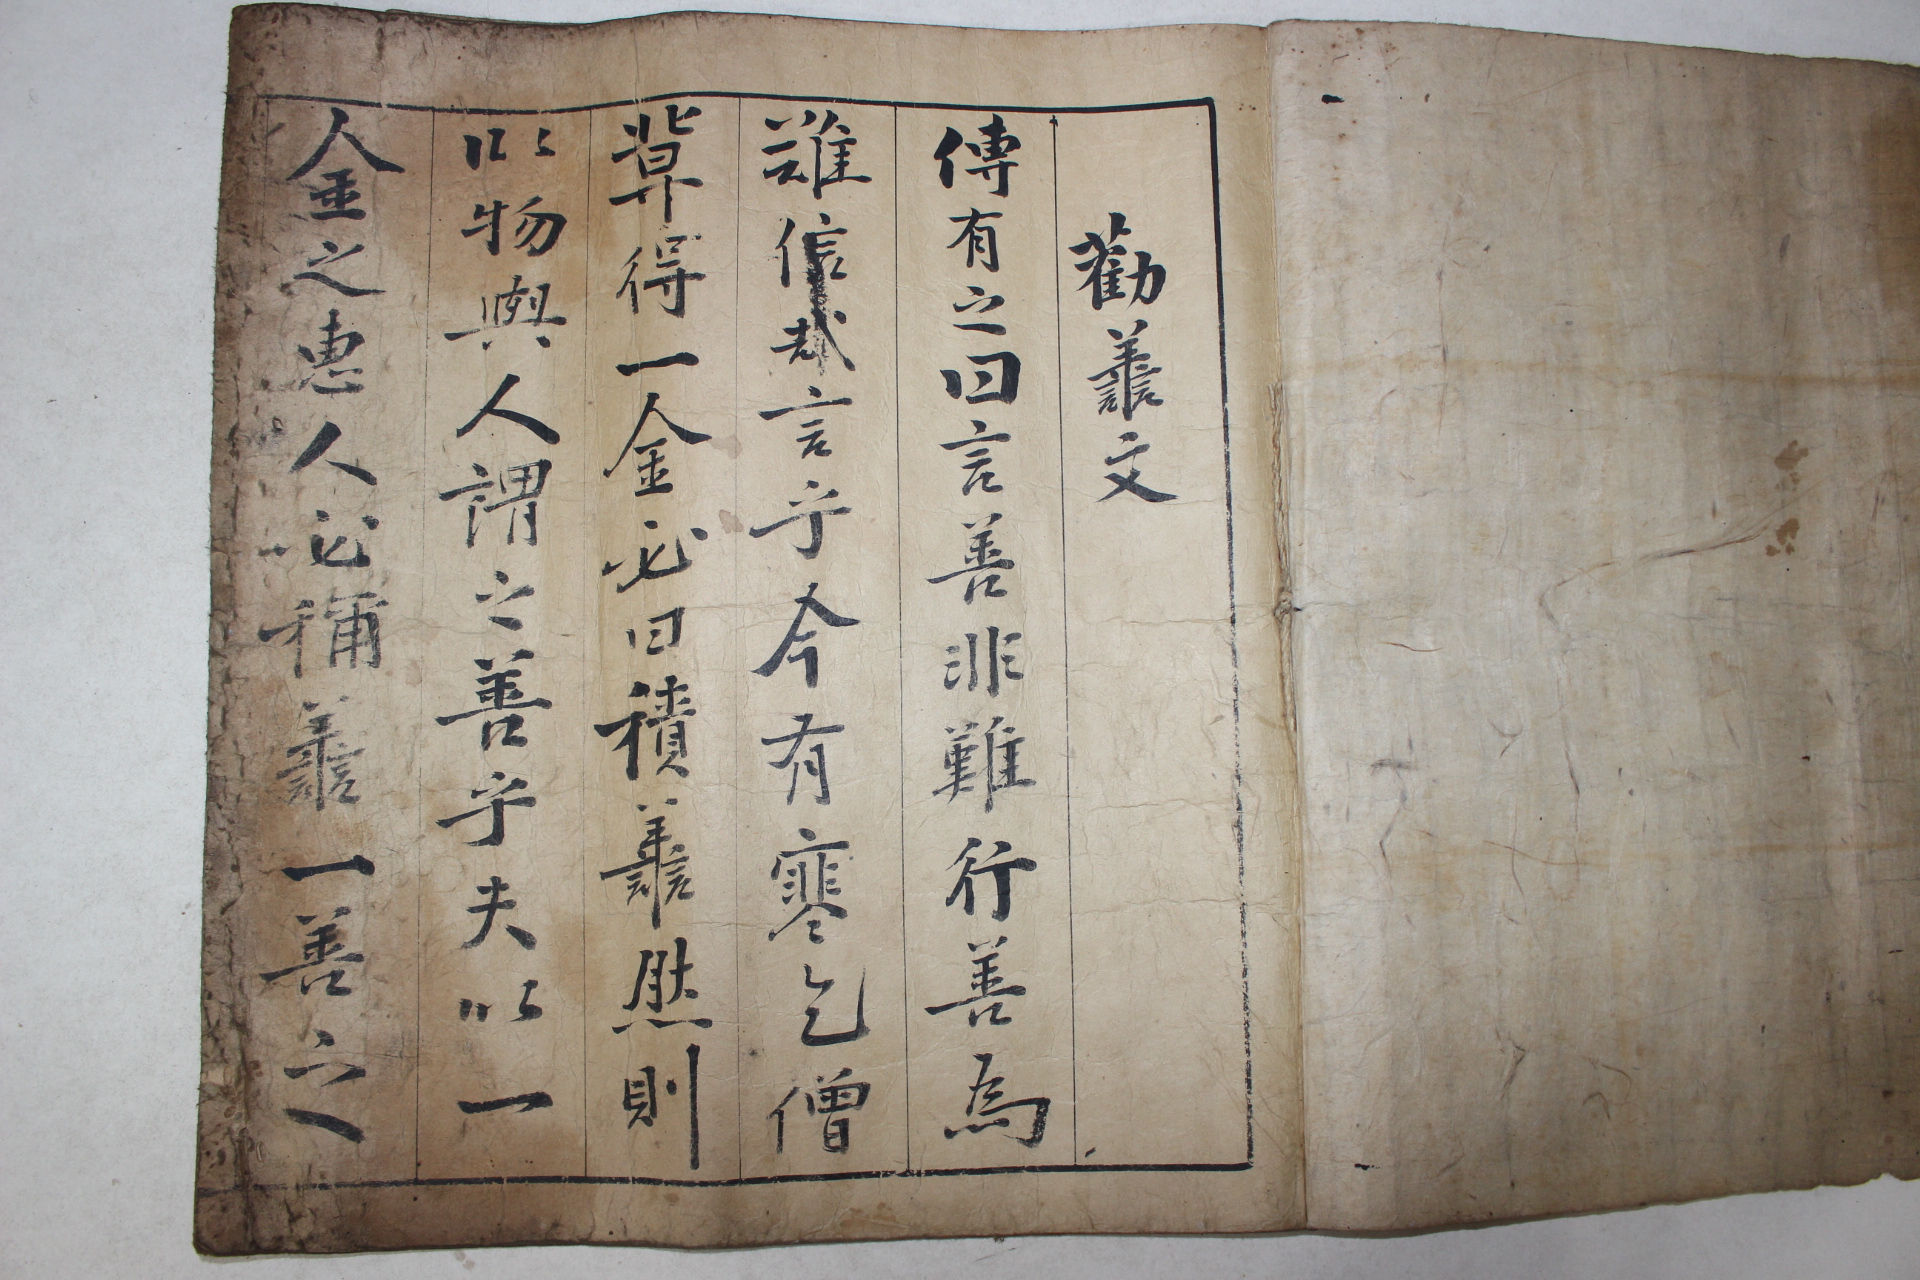 勸譱文
傳有之曰言善非難行善爲
難信哉言乎今有寒乞僧
幕得一金必曰積譱然則
以物與人謂之善乎夫以一
金之惠人必稱譱一善之